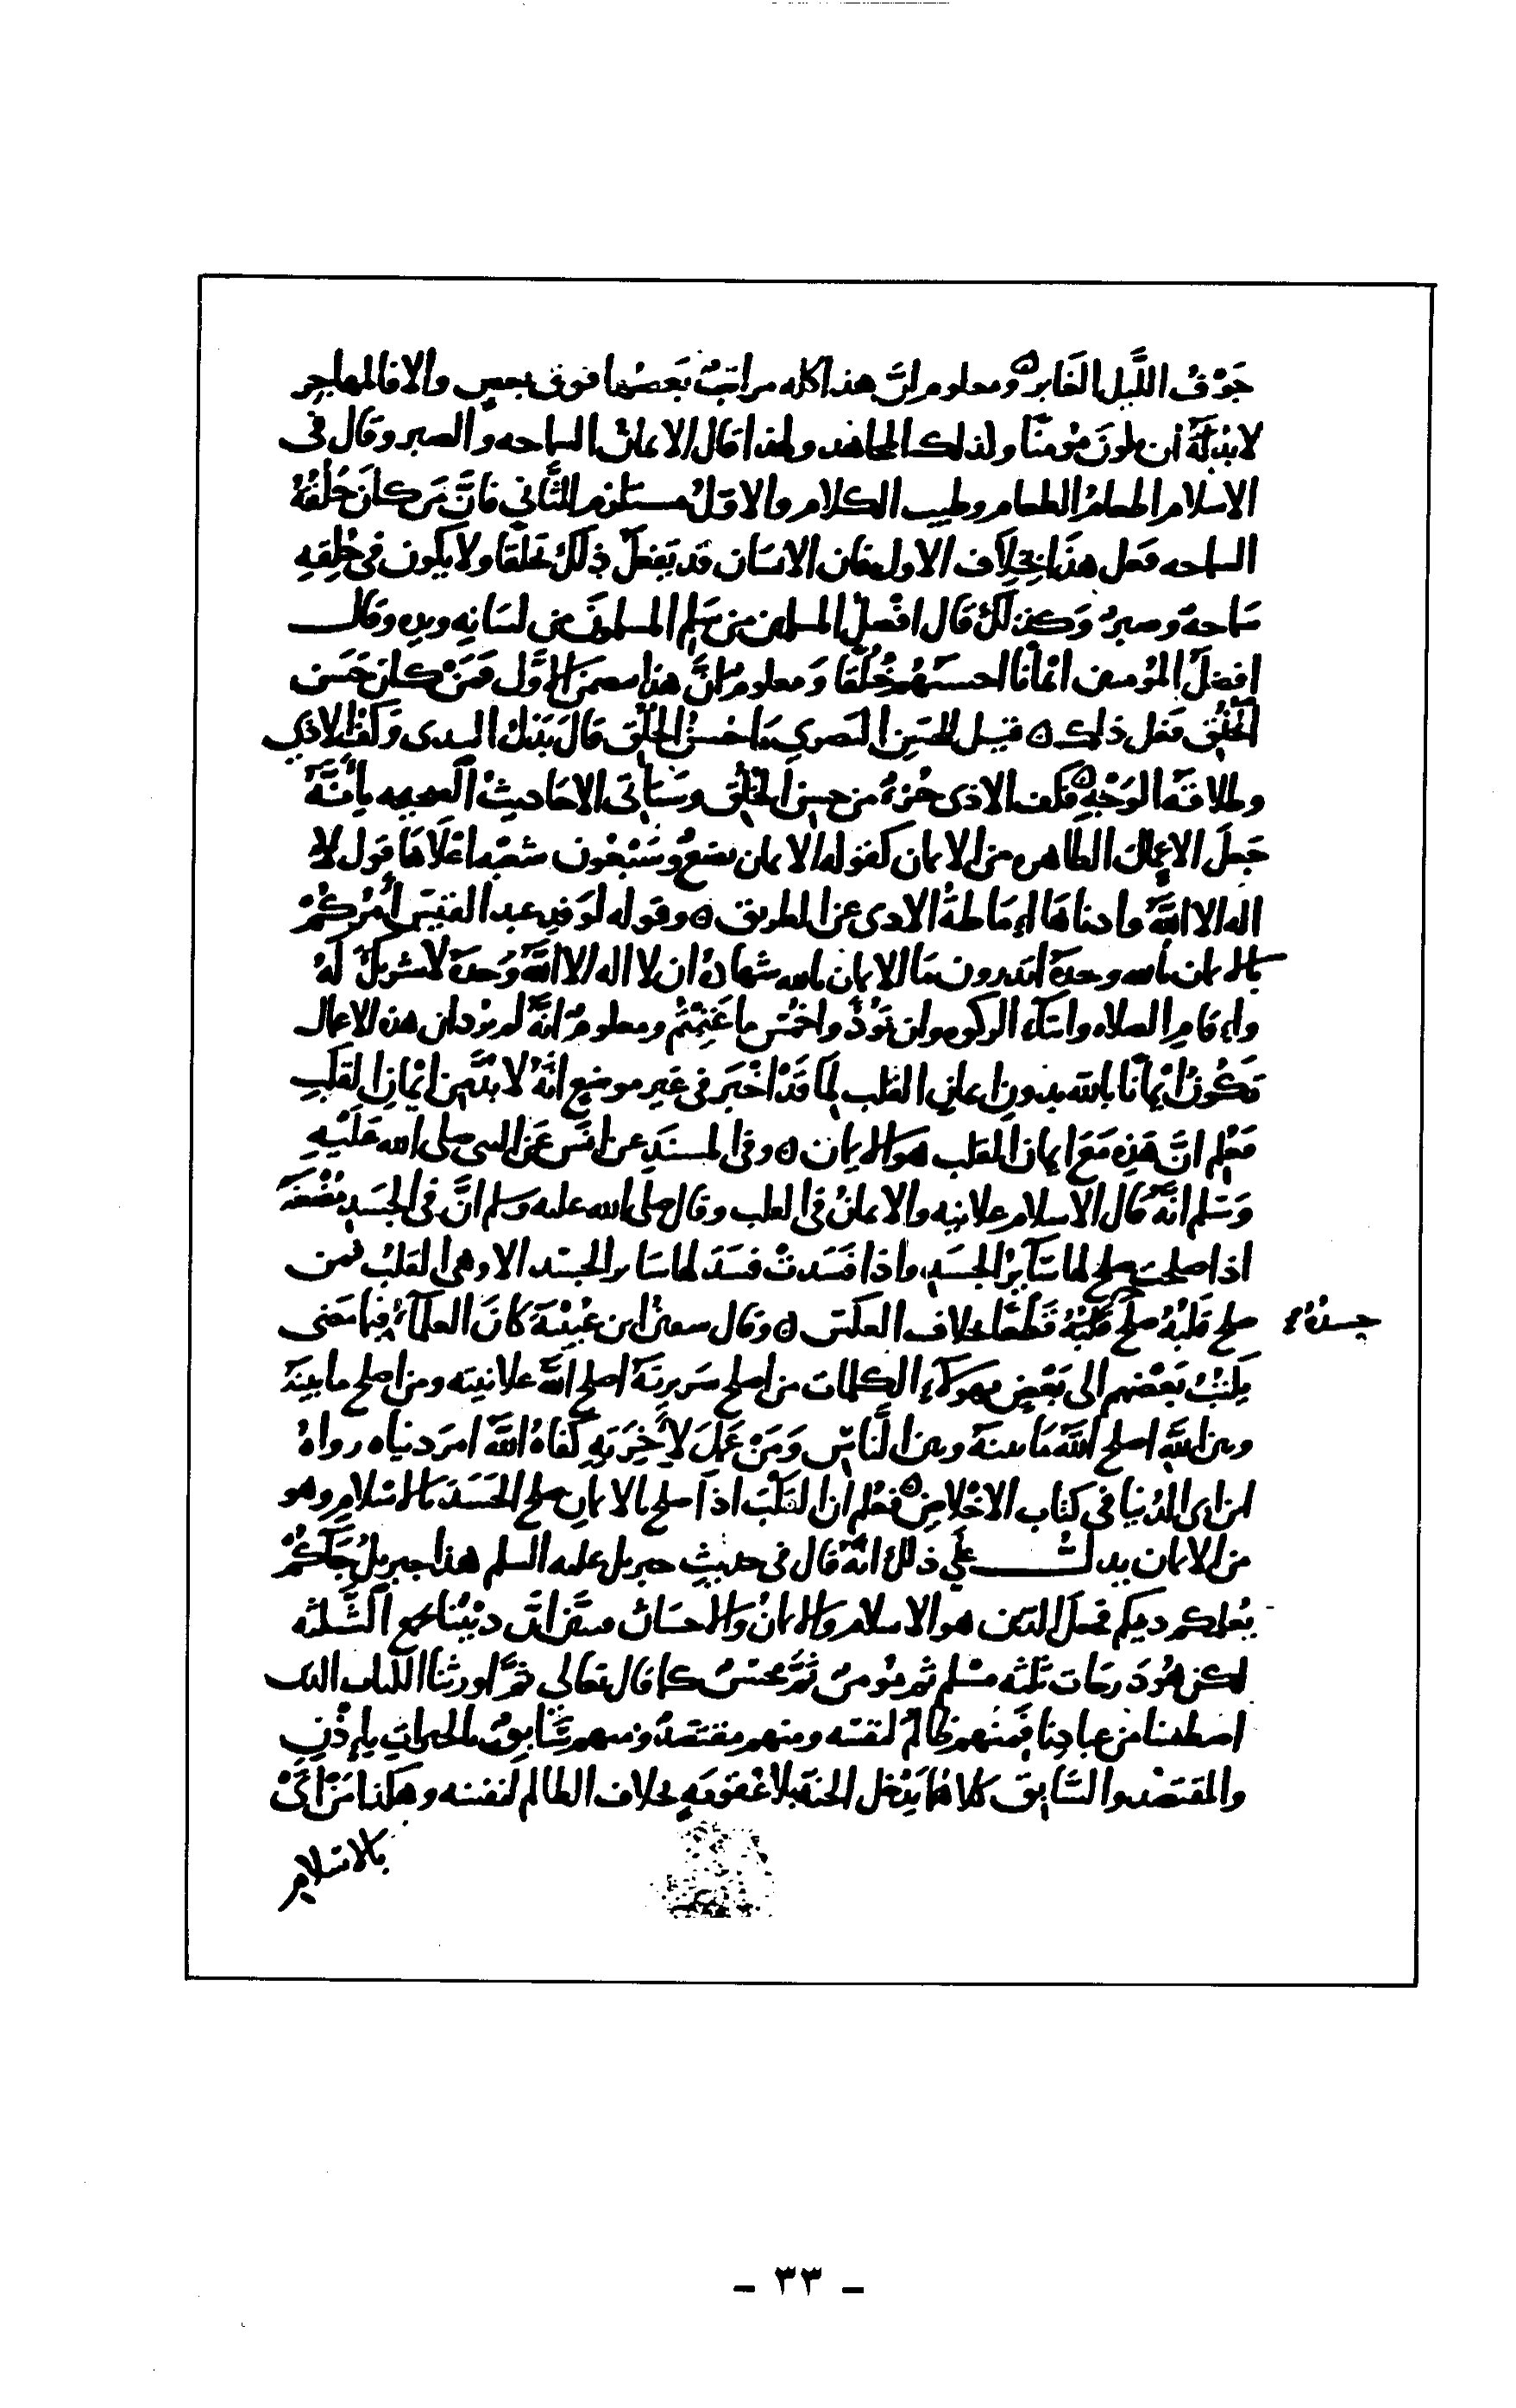 جَوْفُ اللَّيل الغَابر ه ومعلوم انَّ هذا كله مراتبٌ بَعضُها فوق بعضٍ والا فالمهاجر
لا بُدَّ لَهُ أن يكونَ مُؤمنًا ولذلك المجاهد ولهذا قال الايمان السماحه والصبر وقال في
الاسلام اطعامُ الطعام وطيب الكلام والاوّلُ مستلزم للثَّاني فانَّ مَن كانَ خُلُقُهُ
السماحه فعل هذَا بخلاف الاول فان الانسان قد يَفعلُ ذلك تخلقا ولا يكون في خُلقِهِ
سَماحةٌ وصبرٌ وَكذلكَ قال افضلُ المسلمين من سَلم المسلمونَ من لسَانِهِ ويدِهِ وقال
افضلُ المؤمنين ايمانًا احسنَهُم خُلُقًا وَمعلومٌ انَّ هذا يتضمن الاوَّل فمَنْ كانَ حَسَن
الخُلُق فعل ذلك ه قيل للحسَنِ البَصريِ مَا حُسنُ الخُلُق قالَ بَذلُ الندى وَكَفُّ الاذى
وطلاقةُ الوَجْهِ ه فكف الاذى جُزءٌ من حسنِ الخُلُق وسَتَأتي الاحَاديثُ الصحيحه بأنَّهُ
جَعلَ الاعمال الظاهره من الايمان كقوله الايمان بضعٌ وسَبْعُون شعبَه اعْلاهَا قول لا
اله الا اللهُ وادناهَا إمَاطةُ الاذى عن الطريق ه وقوله لوَفدِ عبد القَيسِ آمُرُكُمْ
بالايمان بالله وحدَهُ اتدرون مَا الايمان بالله شهادةُ ان لا اله الا اللهُ وَحدَهُ لا شريكَ لَهُ
وإقامِ الصلاه وايتَاء الزكوه وان تؤدُّوا خُمُسَ ما غَنِمتُم ومعلومٌ انَّهُ لم يُرِد ان هذه الاعمال
تكُونُ ايمانًا بالله بدونِ ايمانِ القلب لِمَا قَدْ اخْبَرَ في غير موضعٍ انّهُ لا بدَّ مِن ايمَانِ القَلبِ
فعُلم انَّ هَذِه مَعَ ايمانِ القلب هو الايمان ه وفي المسندِ عن انَسٍ عَنِ النبي صلى الله عَلَيْهِ
وَسَلم انّهُ قال الاسلام علانيه والايمانُ في القلب وقال صلى الله عليه وسلم انَّ في الجَسَدِ مُضْغَة
اذا صلحت صلح لها سَآئرُ الجسَدِ واذا فَسَدت فسَدَ لها سَاير الجسَد الا وهي القلبُ فمن
صلح قلبُهُ صلح قلبُهُ قَطعًا بخلاف العكس ه وقال سفينُ ابن عُيَيْنَةَ كانَ العلمآءُ فيما مَضى
جسدُهُ
يكتبُ بَعْضهم الى بَعْضٍ بهولاءِ الكلمات من اصلح سَريرتَهُ اصلح اللهُ علانيته ومن اصلح ما بينَهُ
وبين اللهِ اصلح اللهُ مَا بينهُ وبين النَّاسِ وَمَنْ عَمِلَ لآخِرَتِهِ كفاهُ اللهُ امرَ دنياه رواهُ
ابن ابي الدُنيا في كتاب الاخْلاصِ ه فعُلم ان القَلْبَ اذا صلح بالايمانِ صلح الجَسَدَ بالاسلامِ وهو
من الايمان يدلُّ عَلَى ذلك انّهُ قال في حديثِ جبريل عليه السلم هذا جبريلُ جَآءَكُمْ
يُعلمكم دينكم فجعل الدّين هو الاسلام والايمانُ والاحسَان فبَيَّن انَّ دينُنا يجمع الثَّلثَه
لكن هُوَ دَرجات ثلثه مسْلم ثم مُؤمنٌ ثُمَّ محسنٌ كما قال تعالى ثمَّ اورثنا الكتاب الذين
اصطفينا من عبادِنا فمنهم ظالمٌ لنفسه ومنهم مقتصدٌ ومنهم سَابقٌ بالخيراتِ بإذْنِ
والمقتصدُ والسَّابق كلاهُما يَدْخل الجنةَ بلا عُقوبةٍ بخلاف الظالم لنفسه وهكذا مَن اتَى
بالاسلامِ
- ٣٣ -